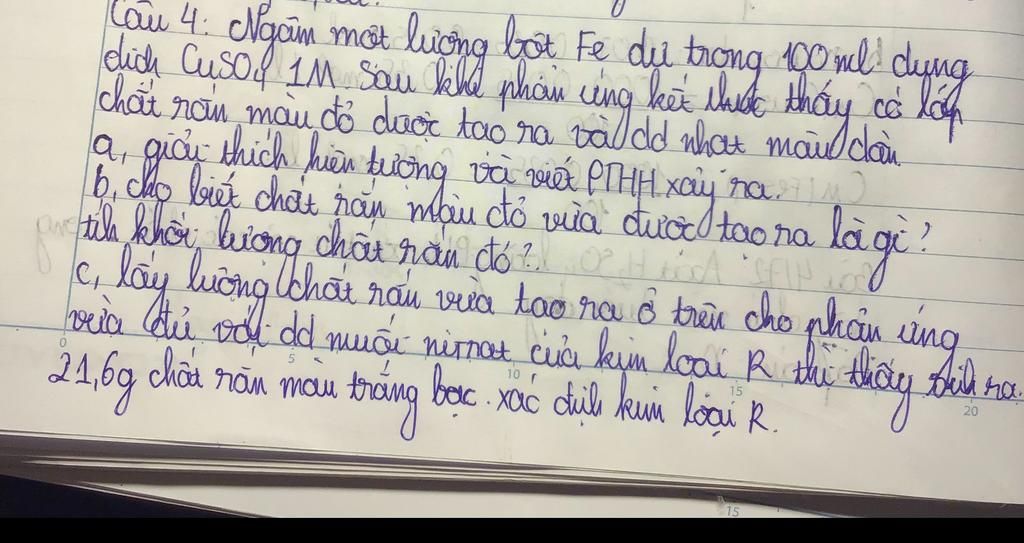 Câu 4: Ngâm một lượng bột Fe dư trong 100ml dung
dịch CuSO4 1M. Sau khi phản ứng kết thúc thấy có lớp
chất rắn màu đỏ được tạo ra và dd nhạt màu dần.
a, giải thích hiện tượng và viết PTHH xảy ra.
b, cho biết chất rắn màu đỏ vừa được tạo ra là gì?
tính khối lượng chất rắn đó?
c, lấy lượng chất rắn vừa tạo ra ở trên cho phản ứng
vừa đủ với dd muối nitrat của kim loại R thì thấy sinh ra
21,6g chất rắn màu trắng bạc. xác định kim loại R.
0 5 10 15 20
15